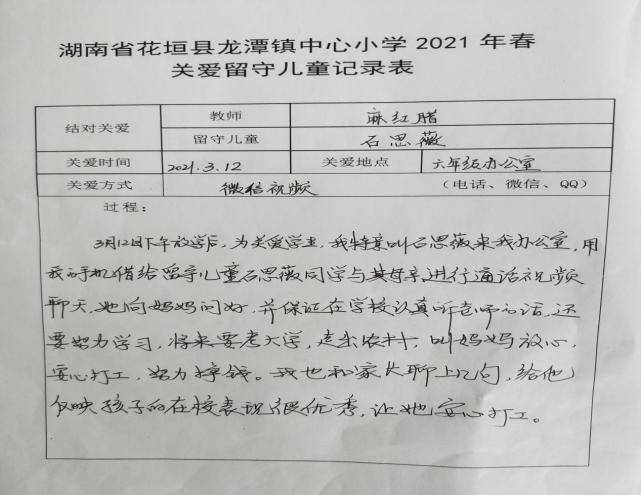 湖南省花垣县龙潭镇中心小学 2021 年春
关爱留守儿童记录表
结对关爱 教师 麻红腊
留守儿童 石思薇
关爱时间 2021.3.12 关爱地点 六年级办公室
关爱方式 微信视频 (电话、微信、QQ)
过程:
3月12日下午放学后,为关爱学生,我特意叫石思薇来我办公室,用
我的手机借给留守儿童石思薇同学与其母亲进行通话视频
聊天,她向妈妈问好,并保证在学校认真听老师的话,还
要努力学习,将来要考大学,走出农村,叫妈妈放心,
安心打工,努力挣钱。我也和家长聊上几句,给他
反映孩子的在校表现很优秀,让她安心打工。